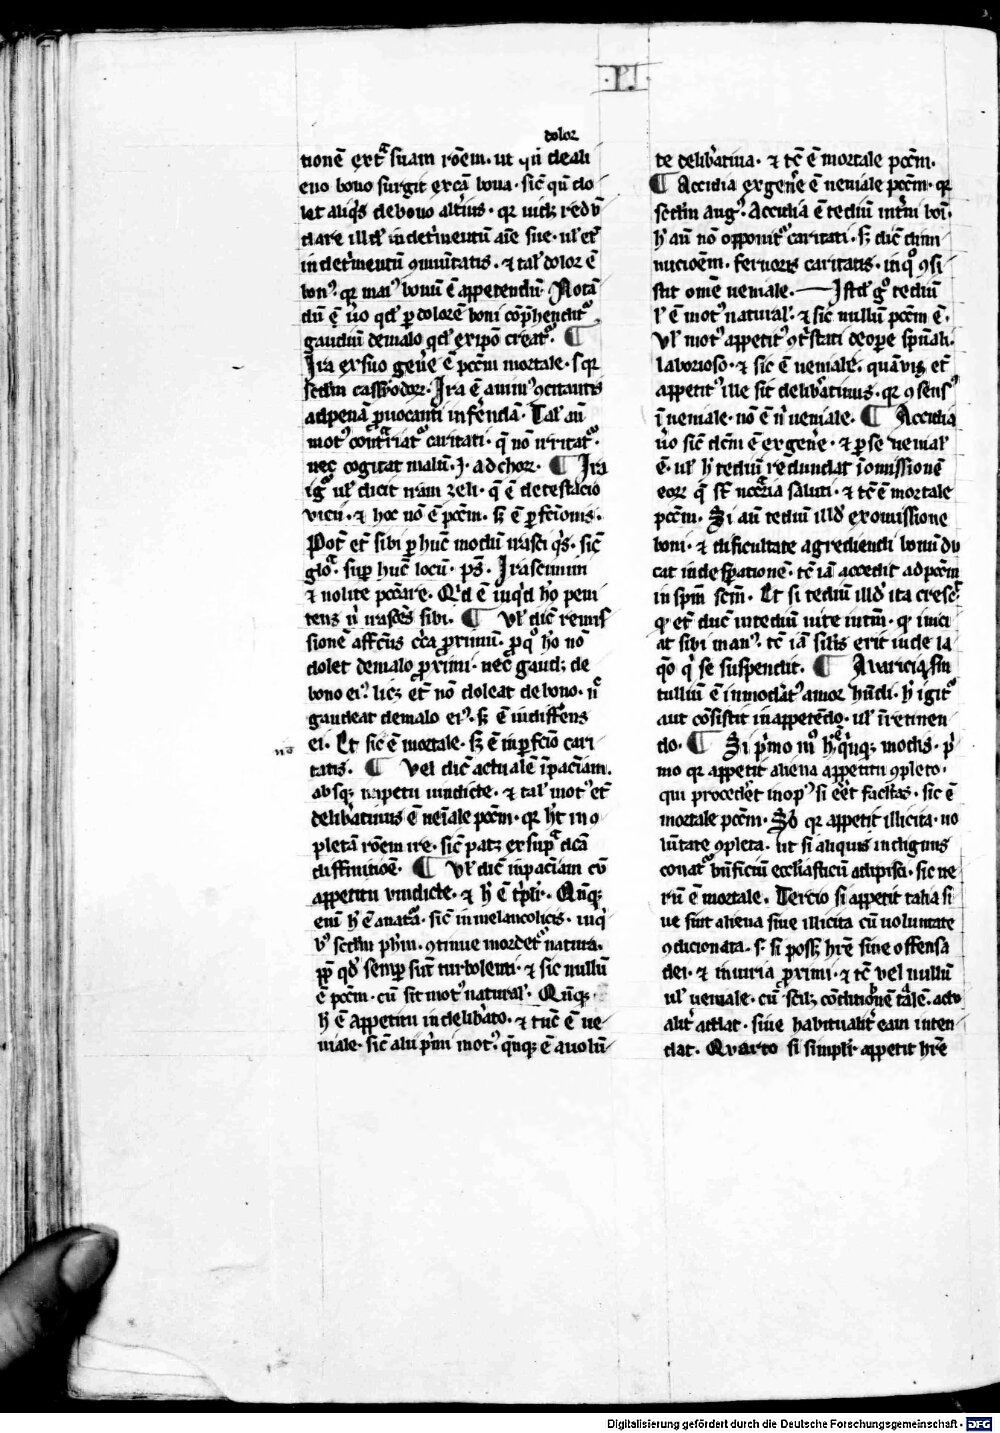 ·PI·
dolor
tionē extᷓ suam rōem· ut qn̄ de ali
eno bono surgit ex cā bona· sic̄ qn̄ do
let aliq̇s de bono alt̓ius· qr uidꝫ redū
dare illđ in det̓mentū aīe sue· ul̓ et̄
in det̓mentū ꝯmūtatis· ⁊ tal̓ dolor ē
bonꝰ· qr maiꝰ bonū ē appetendū· Notā
dū ē ūo qđ ꝑ dolorē boni cōp̓hendit᷑
gaudiū de malo qđ ex ip̄o creat᷑· ¶
Ira ex suo gen̓e ē pcc̄m mortale· qr
scd̄m cassiodor· Ira ē animꝰ ꝯcitantis
ad penā ꝓuocanti inferendā· Tal̓ aū
motꝰ contᷓriat᷑ caritati· q̄ nō irritat᷑·
nec cogitat malū· j· ad chor· ¶ Ira
ig᷑ ul̓ dicit iram zeli· q̄ ē detestacio
vicii· ⁊ hoc nō ē pcc̄m· sꝫ ē ꝑfcīonis·
Pot̄ et̄ sibi ꝑ hūc modū irasci q̇s· sic̄
gloᷓ· suꝑ hūc locū· ps̄· Irascimini
⁊ nolite pcc̄are· Qđ ē inq̇d hō peni
tens n̄ irasces sibi· ¶ Ul̓ dic̄ remis
sionē affc̄us cc̄a ꝓximū· ꝑ qͦ hō nō
dolet de malo ꝓximi· nec gaudꝫ de
bono eiꝰ· licꝫ et̄ nō doleat de bono· n̄
gaudeat de malo eiꝰ· sꝫ ē indiffe̓ns
ei· Et sic ē mortale· sꝫ ē inꝑfcīo cari
tatis· ¶ Vel dic̄ actualē īpac̄iam·
absqꝫ impetu uindicte· ⁊ tal̓ motꝰ et̄
delib̓atiuus ē ueīale pcc̄m· qr hꝫ in ꝯ
pletā rōem ire· sic̄ patꝫ ex supᷓ dc̄ā
diffinitiōe· ¶ Ul̓ dic̄ inpac̄iam cū
appetitu uindicte· ⁊ h̓ ē t̓pl̓r· Qn̄qꝫ
eni h̓ ē a natᷓa· sic̄ in melancolicis· in q̇
bꝰ scd̄m ph̄m· ꝯtinue mordet᷑ natura·
ꝓp̄ qđ semꝑ sūt turbolenti· ⁊ sic nullū
ē pcc̄m· cū sit motꝰ natural̓· Qn̄qꝫ
h̓ ē appetitu indelib̓ato· ⁊ tūc ē ue
niale· sic̄ alii p̓mi motꝰ· qn̄qꝫ ē a uolū
nō
te delib̓atiua· ⁊ tc̄ ē mortale pcc̄m·
¶ Accidia ex gen̓e ē ueniale pcc̄m· qr
scd̄m augꝰ· Accidia ē tediū int̓ni boī·
h̓ aū nō opponit᷑ caritati· sꝫ dic̄ dimi
nucioēm· feruoris caritatis· in qͦ ꝯsi
stit omē ueniale· Istđ gͦ tediū
l̓ ē motꝰ natural̓· ⁊ sic nullū pcc̄m ē·
Vl̓ motꝰ appetitꝰ ꝯt̓stati de oꝑe spūali·
laborioso· ⁊ sic ē ueniale· quāuis et̄
appetitꝰ ille sit delib̓atiuus· qr ꝯsensꝰ
ī ueniale· nō ē n̓ ueniale· ¶ Accidia
ūo sic̄ dc̄m ē ex gen̓e· ⁊ ꝑ se uenial̓
ē· ul̓ h̓ tediū redundat ī omissionē
eoꝝ q̄ st̄ nccᷓria saluti· ⁊ tc̄ ē mortale
pcc̄m· Si aū tediū illđ ex omissione
boni· ⁊ dificultate agrediendi bonū du
cat in despationē· tc̄ iā accedit ad pcc̄m
in spm̄ scm̄· Et si tediū illđ ita cresc̄
qͦ et̄ duc̄ in tediū uite intm̄· qͦ inici
at sibi manꝰ· tc̄ iā sil̓is erit iude ia
q̄o q̇ se suspendit· ¶ Auaricia scdm
tulliū ē inmod̓atꝰ amor hn̄di· h̓ igit᷑
aut cōsistit in appetēdo· ul̓ in̄ retinen
do· ¶ Si p̓mo mͦ h̓ ē q̇nqꝫ modis· p̓
mo qr appetit aliena appetitu ꝯpleto·
qui procedet̓ in opꝰ si eet̄ facl̓tas· sic ē
mortale pcc̄m· Sꝰ qr appetit illicita· uo
lūtate ꝯpleta· ut si aliquis indignus
conat᷑ bn̄ficiū eccliasticū adipisci· sic ue
rū ē mortale· Tercio si appetit talia si
ue sint aliena siue illicita cū uoluntate
ꝯdicionata· s· si possꝫ hr̄e sine offensa
dei· ⁊ iniuria ꝓximi· ⁊ tc̄ vel nullū
ul̓ ueniale· cū scilꝫ cōditionē talē· actu
alit̓ addat· siue habitualit̓ eam inten
dat· Quarto si simpl̓r appetit hr̄e
Digitalisierung gefördert durch die Deutsche Forschungsgemeinschaft - DFG